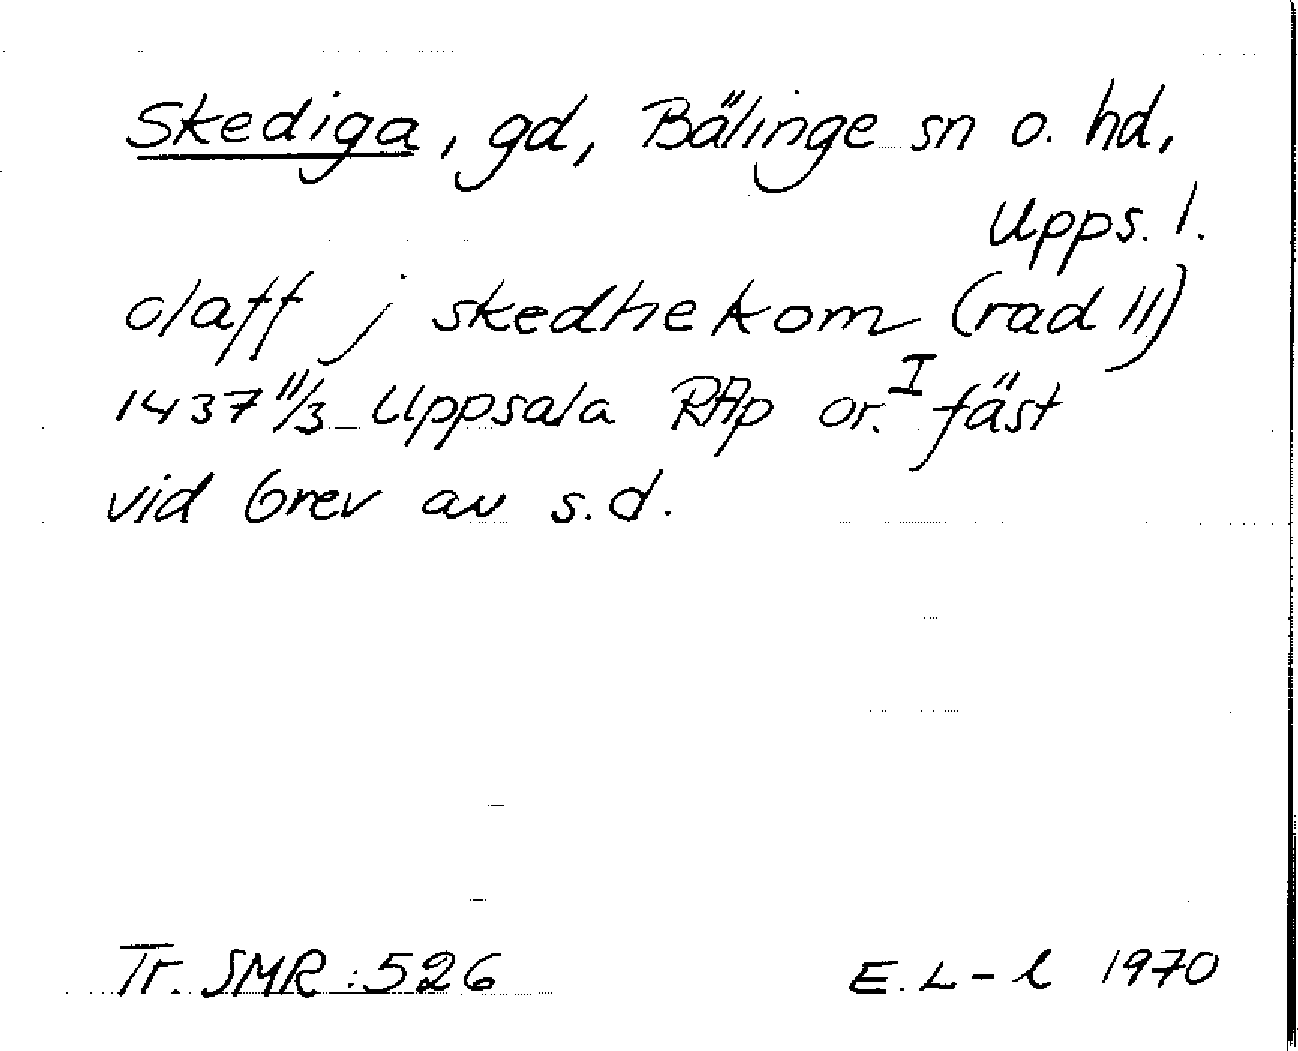 Skediga, gd, Bälinge sn o. hd,
Upps. l.
olaff j skedhekom (rad 11)
1437 11/3 Uppsala RAp or. I fäst
vid brev av s.d.
Tr. SMR:526 E.L-l 1970